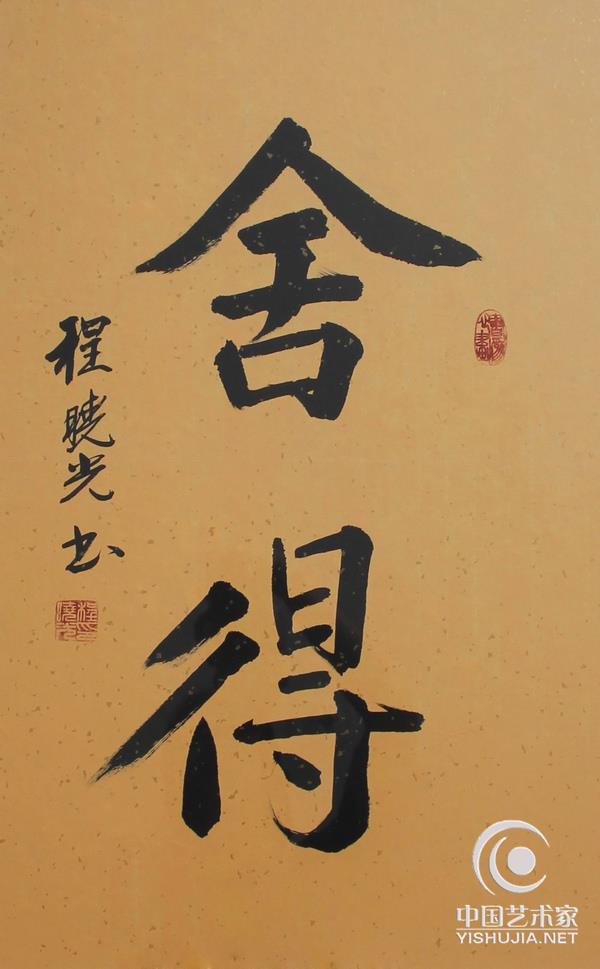 舍得
程曉光书
中国艺术家
YISHUJIA.NET